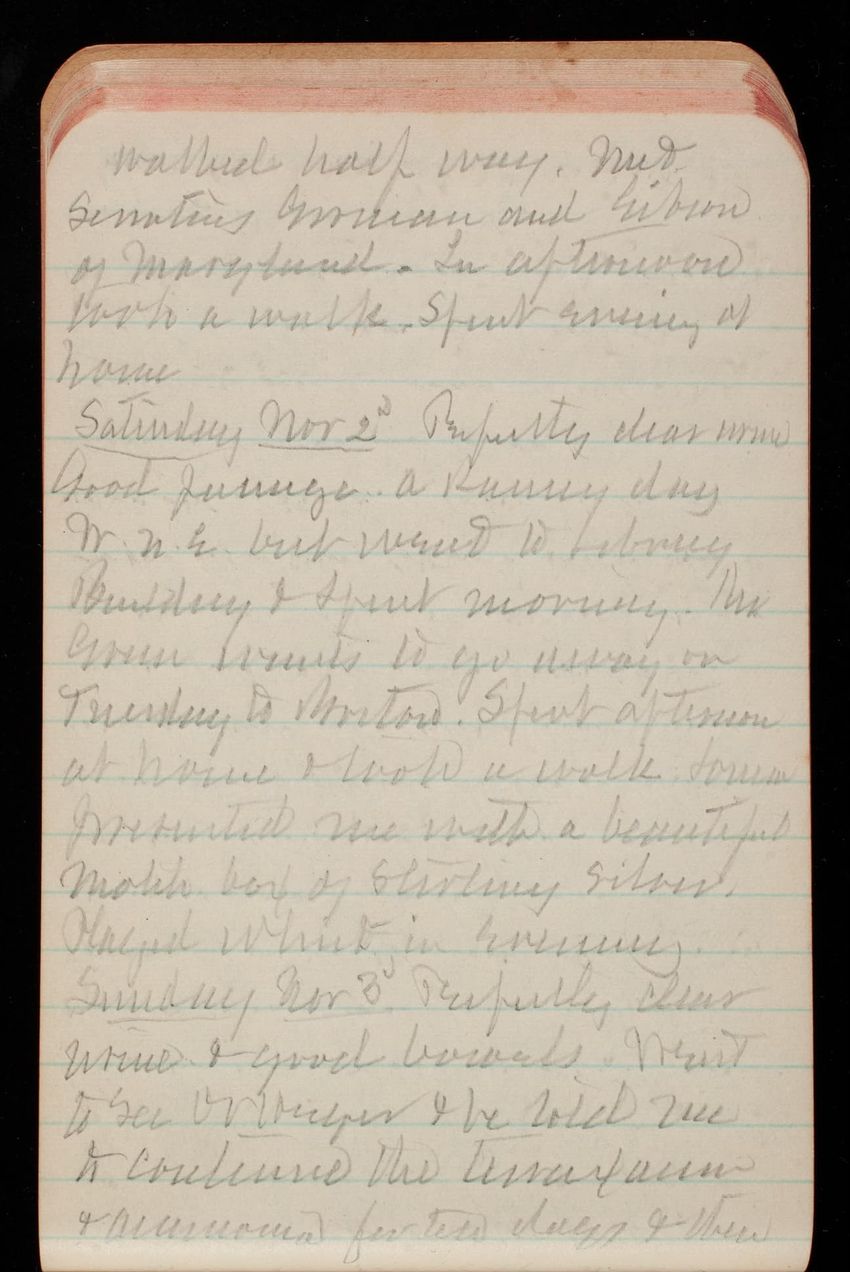 walked half way. Met
Senators Gorman and Gibson
of Maryland. In afternoon
took a walk. Spent evening at
home
Saturday Nov 2d Perfectly clear urine
Good passage. A rainy day
W. N. E. but went to Library
Building & spent morning.
Green wants to go away on
Tuesday to Boston. Spent afternoon
at home & took a walk.
presented me with a beautiful
match box of Sterling Silver.
Played Whist in Evening.
Sunday Nov 3d Perfectly clear
urine & good bowels. Went
to see Dr & he told me
to continue the
& ammonia for ten days & then